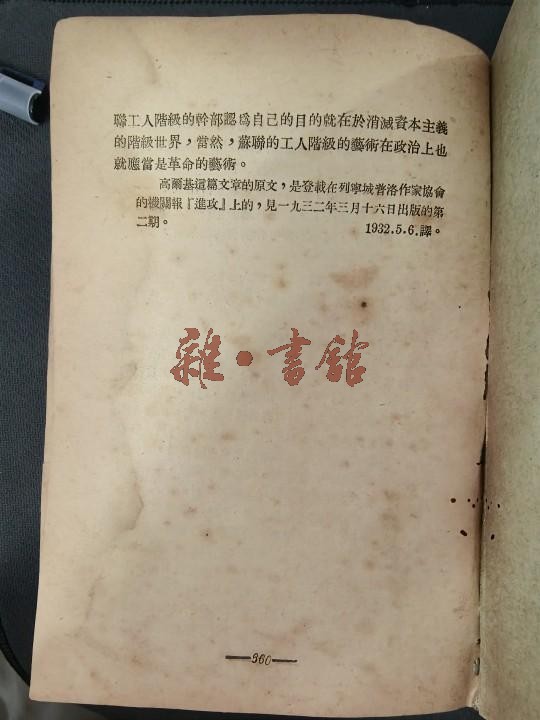 聯工人階級的幹部認爲自己的目的就在於消滅資本主義
的階級世界，當然，蘇聯的工人階級的藝術在政治上也
就應當是革命的藝術。
高爾基這篇文章的原文，是登載在列寧城普洛作家協會
的機關報『進攻』上的，見一九三二年三月十六日出版的第
二期。 1932.5.6.譯。
雜·書館
960